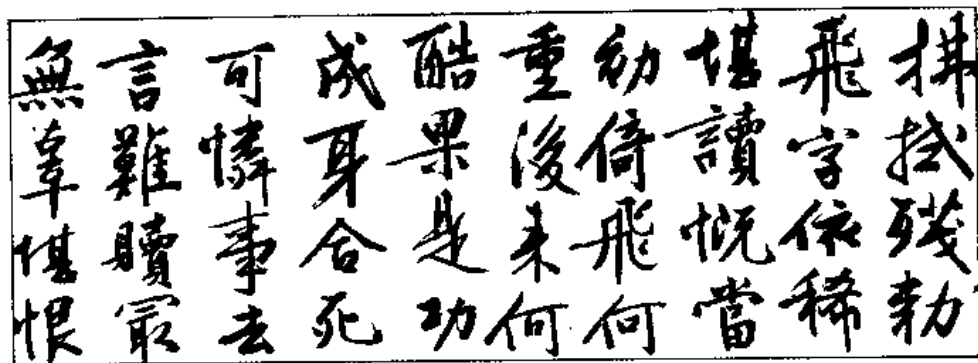 拂拭殘勅
飛字依稀
堪讀慨當
初倚飛何
重後来何
酷果是功
成身合死
可憐事去
言難贖冣
無辜堪恨